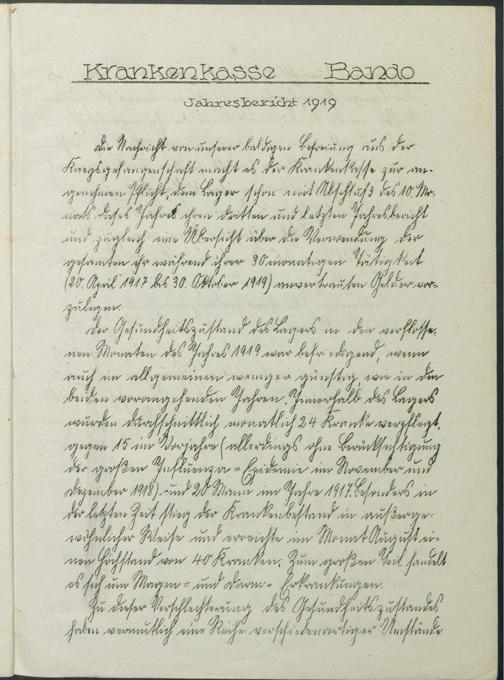 Krankenkasse Bando
Jahresbericht 1919
Die Nachricht von unserer baldigen Befreiung aus der
Kriegsgefangenschaft macht es der Krankenkasse zur an-
genehmen Pflicht, dem Lager schon mit Abschluß des 10. Mo-
nats dieses Jahres ihren dritten und letzten Jahresbericht
und zugleich eine Übersicht über die Verwendung der
gesamten ihr während ihrer 30 monatigen Tätigkeit
(20. April 1917 bis 30. Oktober 1919) anvertrauten Gelder vor-
zulegen.
Der Gesundheitszustand des Lagers in den verflosse-
nen Monaten des Jahres 1919 war befriedigend, wenn
auch im allgemeinen weniger günstig, wie in den
beiden vorangehenden Jahren. Innerhalb des Lagers
wurden durchschnittlich monatlich 24 Kranke verpflegt,
gegen 15 im Vorjahre (allerdings ohne Berücksichtigung
der großen Influenza-Epidemie im November und
Dezember 1918) und 20 Mann im Jahre 1917. Besonders in
der letzten Zeit stieg der Krankenbestand in außerge-
wöhnlicher Weise und erreichte im Monat August ei-
nen Höchstand von 40 Kranken. Zum großen Teil handelt
es sich um Magen- und Darm-Erkrankungen.
Zu dieser Verschlechterung des Gesundheitszustandes
haben vermutlich eine Reihe verschiedenartiger Umstände